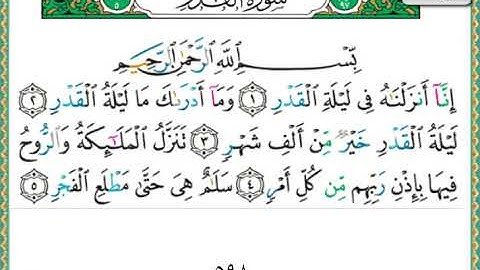 سُورَةُ القَدرِ
بِسْمِ ٱللَّهِ ٱلرَّحْمَٰنِ ٱلرَّحِيمِ
إِنَّآ أَنزَلْنَٰهُ فِى لَيْلَةِ ٱلْقَدْرِ ١ وَمَآ أَدْرَىٰكَ مَا لَيْلَةُ ٱلْقَدْرِ ٢
لَيْلَةُ ٱلْقَدْرِ خَيْرٌ مِّنْ أَلْفِ شَهْرٍ ٣ تَنَزَّلُ ٱلْمَلَٰٓئِكَةُ وَٱلرُّوحُ
فِيهَا بِإِذْنِ رَبِّهِم مِّن كُلِّ أَمْرٍ ٤ سَلَٰمٌ هِىَ حَتَّىٰ مَطْلَعِ ٱلْفَجْرِ ٥
٥٩٨